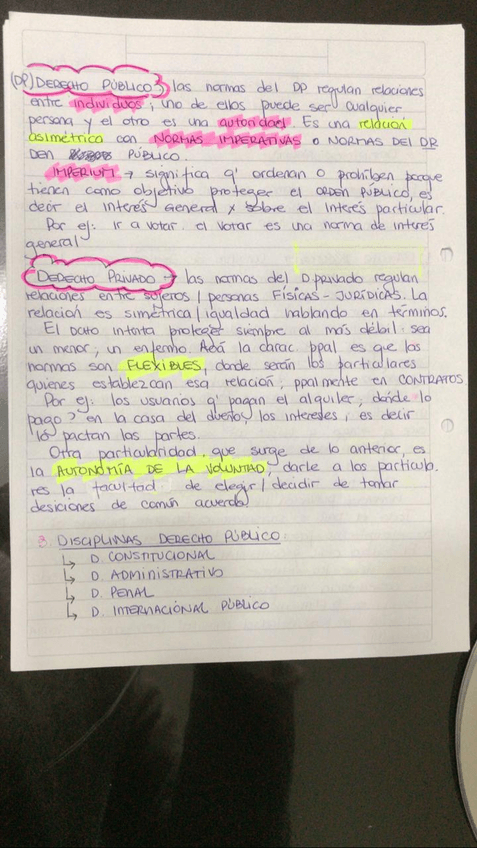 (DP) DERECHO PÚBLICO: las normas del DP regulan relaciones
entre individuos, uno de ellos puede ser cualquier
persona y el otro es una autoridad. Es una relación
asimétrica con NORMAS IMPERATIVAS o NORMAS DEL OR
DEN PÚBLICO.
IMPERIUM → significa q' ordenan o prohíben porque
tienen como objetivo proteger el ORDEN PÚBLICO, es
decir el interés General x sobre el interés particular.
Por ej: ir a votar. el votar es una norma de interés
general
DERECHO PRIVADO → las normas del D privado regulan
relaciones entre sujetos / personas FÍSICAS - JURÍDICAS. La
relación es simétrica / igualdad hablando en términos.
El dcho intenta proteger siempre al más débil. sea
un menor, un enfermo. Acá la carac. ppal es que las
normas son FLEXIBLES, donde serán los particulares
quienes establezcan esa relación, ppalmente en CONTRATOS
Por ej: los usuarios q' pagan el alquiler, dónde lo
pago? en la casa del dueño, los intereses, es decir
lo pactan las partes.
Otra particularidad, que surge de lo anterior, es
la AUTONOMÍA DE LA VOLUNTAD, darle a los particula.
res la facultad de elegir / decidir de tomar
desiciones de común acuerdo
3. DISCIPLINAS DERECHO PÚBLICO:
↳ D. CONSTITUCIONAL
↳ D. ADMINISTRATIVO
↳ D. PENAL
↳ D. INTERNACIONAL PÚBLICO